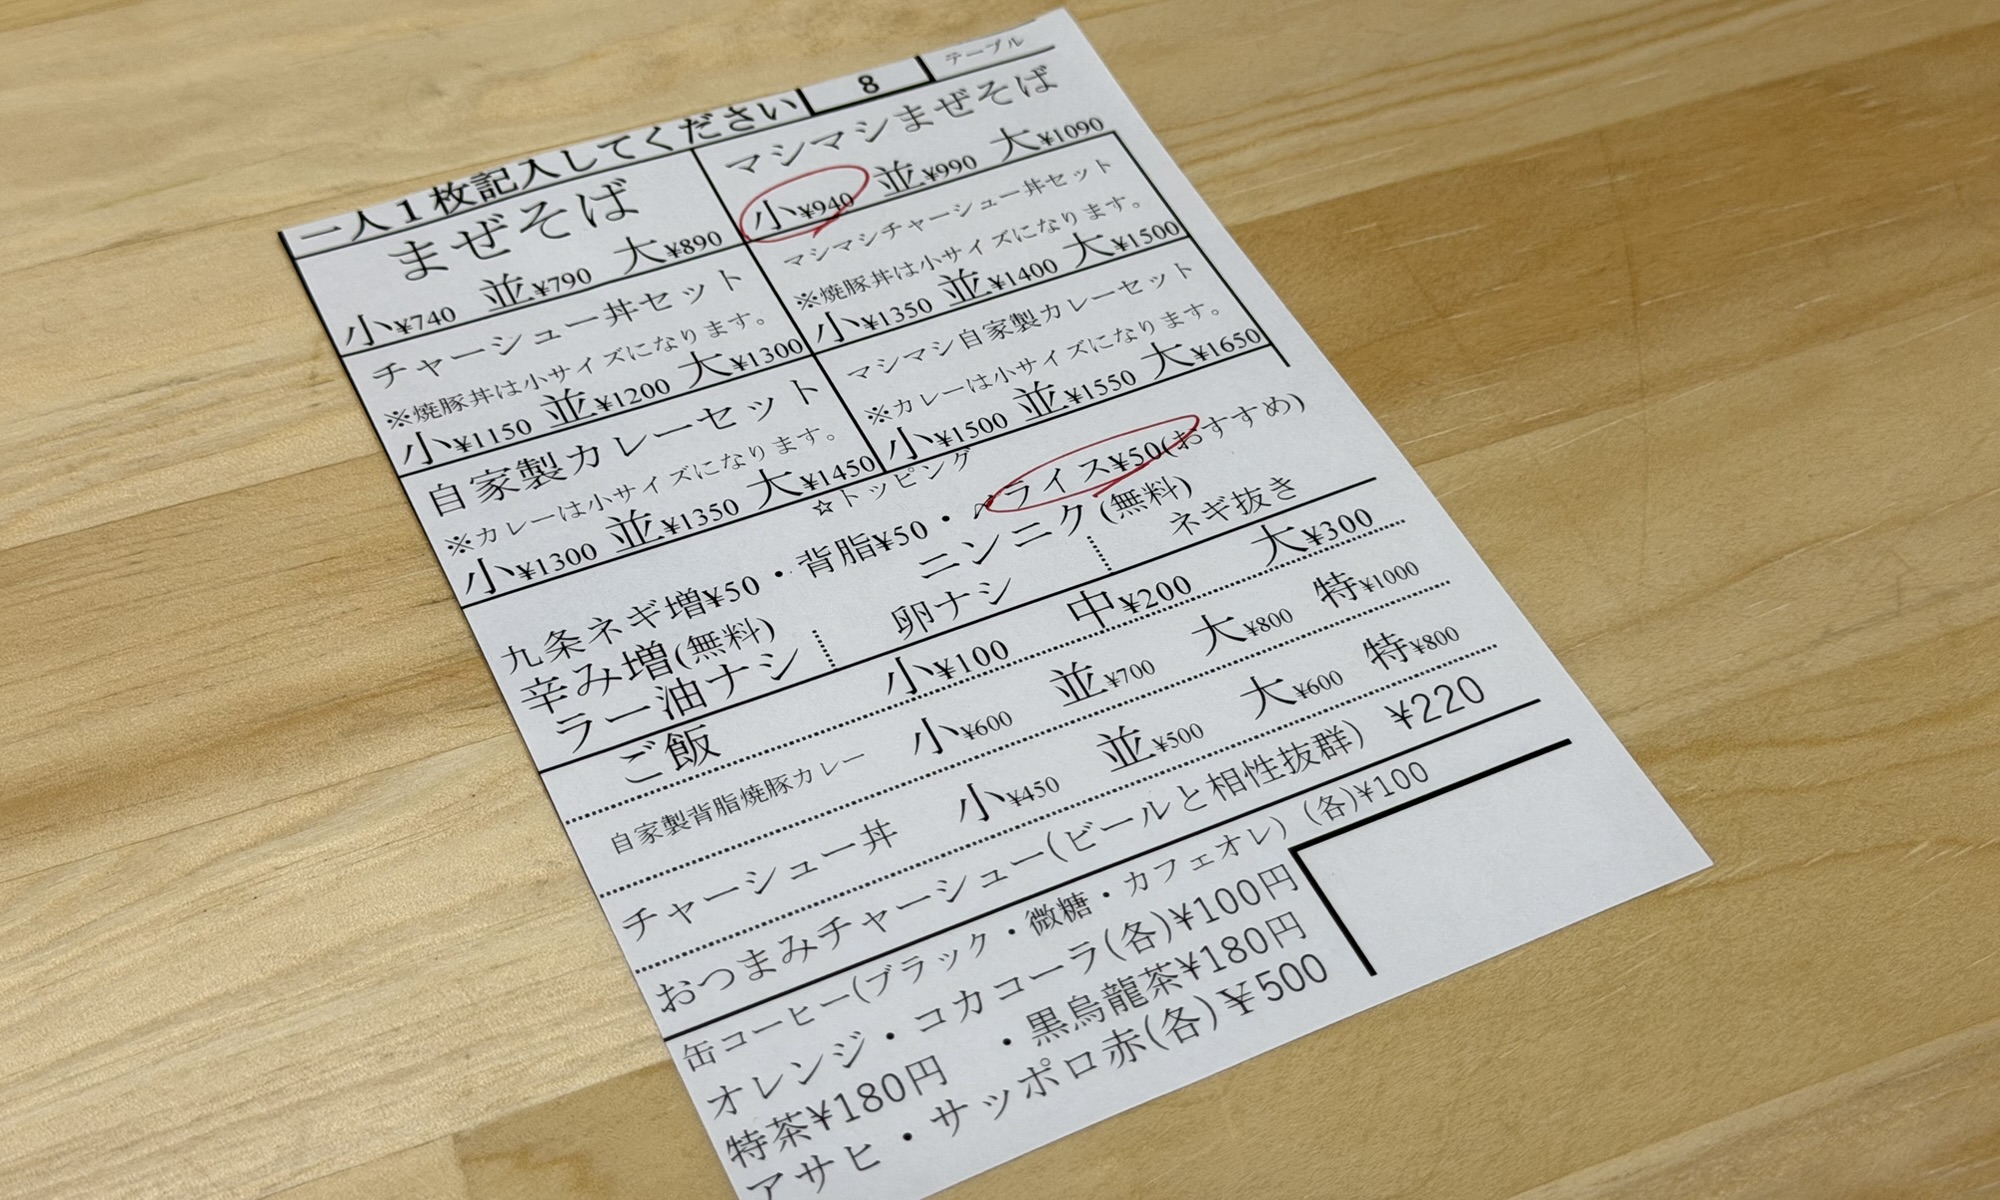 一人1枚記入してください
8
テーブル
まぜそば
小¥740 並¥790 大¥890
チャーシュー丼セット
※焼豚丼は小サイズになります。
小¥1150 並¥1200 大¥1300
自家製カレーセット
※カレーは小サイズになります。
小¥1300 並¥1350 大¥1450
マシマシまぜそば
小¥940 並¥990 大¥1090
マシマシチャーシュー丼セット
※焼豚丼は小サイズになります。
小¥1350 並¥1400 大¥1500
マシマシ自家製カレーセット
※カレーは小サイズになります。
小¥1500 並¥1550 大¥1650
☆トッピング
九条ネギ増¥50・背脂¥50・ライス¥50(おすすめ)
辛み増(無料) ニンニク(無料)
ラー油ナシ 卵ナシ ネギ抜き
ご飯 小¥100 中¥200 大¥300
自家製背脂焼豚カレー 小¥600 並¥700 大¥800 特¥1000
チャーシュー丼 小¥450 並¥500 大¥600 特¥800
おつまみチャーシュー(ビールと相性抜群) ¥220
缶コーヒー(ブラック・微糖・カフェオレ) (各)¥100
オレンジ・コカコーラ(各)¥100円
特茶¥180円 ・黒烏龍茶¥180円
アサヒ・サッポロ赤(各)¥500